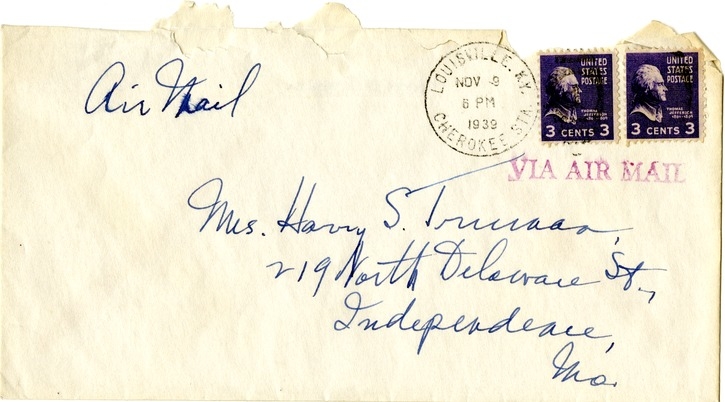 Air Mail
LOUISVILLE, KY.
NOV 9
6 PM
1939
CHEROKEE STA.
UNITED
STATES
POSTAGE
THOMAS
JEFFERSON
3 CENTS 3
UNITED
STATES
POSTAGE
THOMAS
JEFFERSON
1801-1809
3 CENTS 3
VIA AIR MAIL
Mrs. Harry S. Truman,
219 North Delaware St.,
Independence,
Mo.